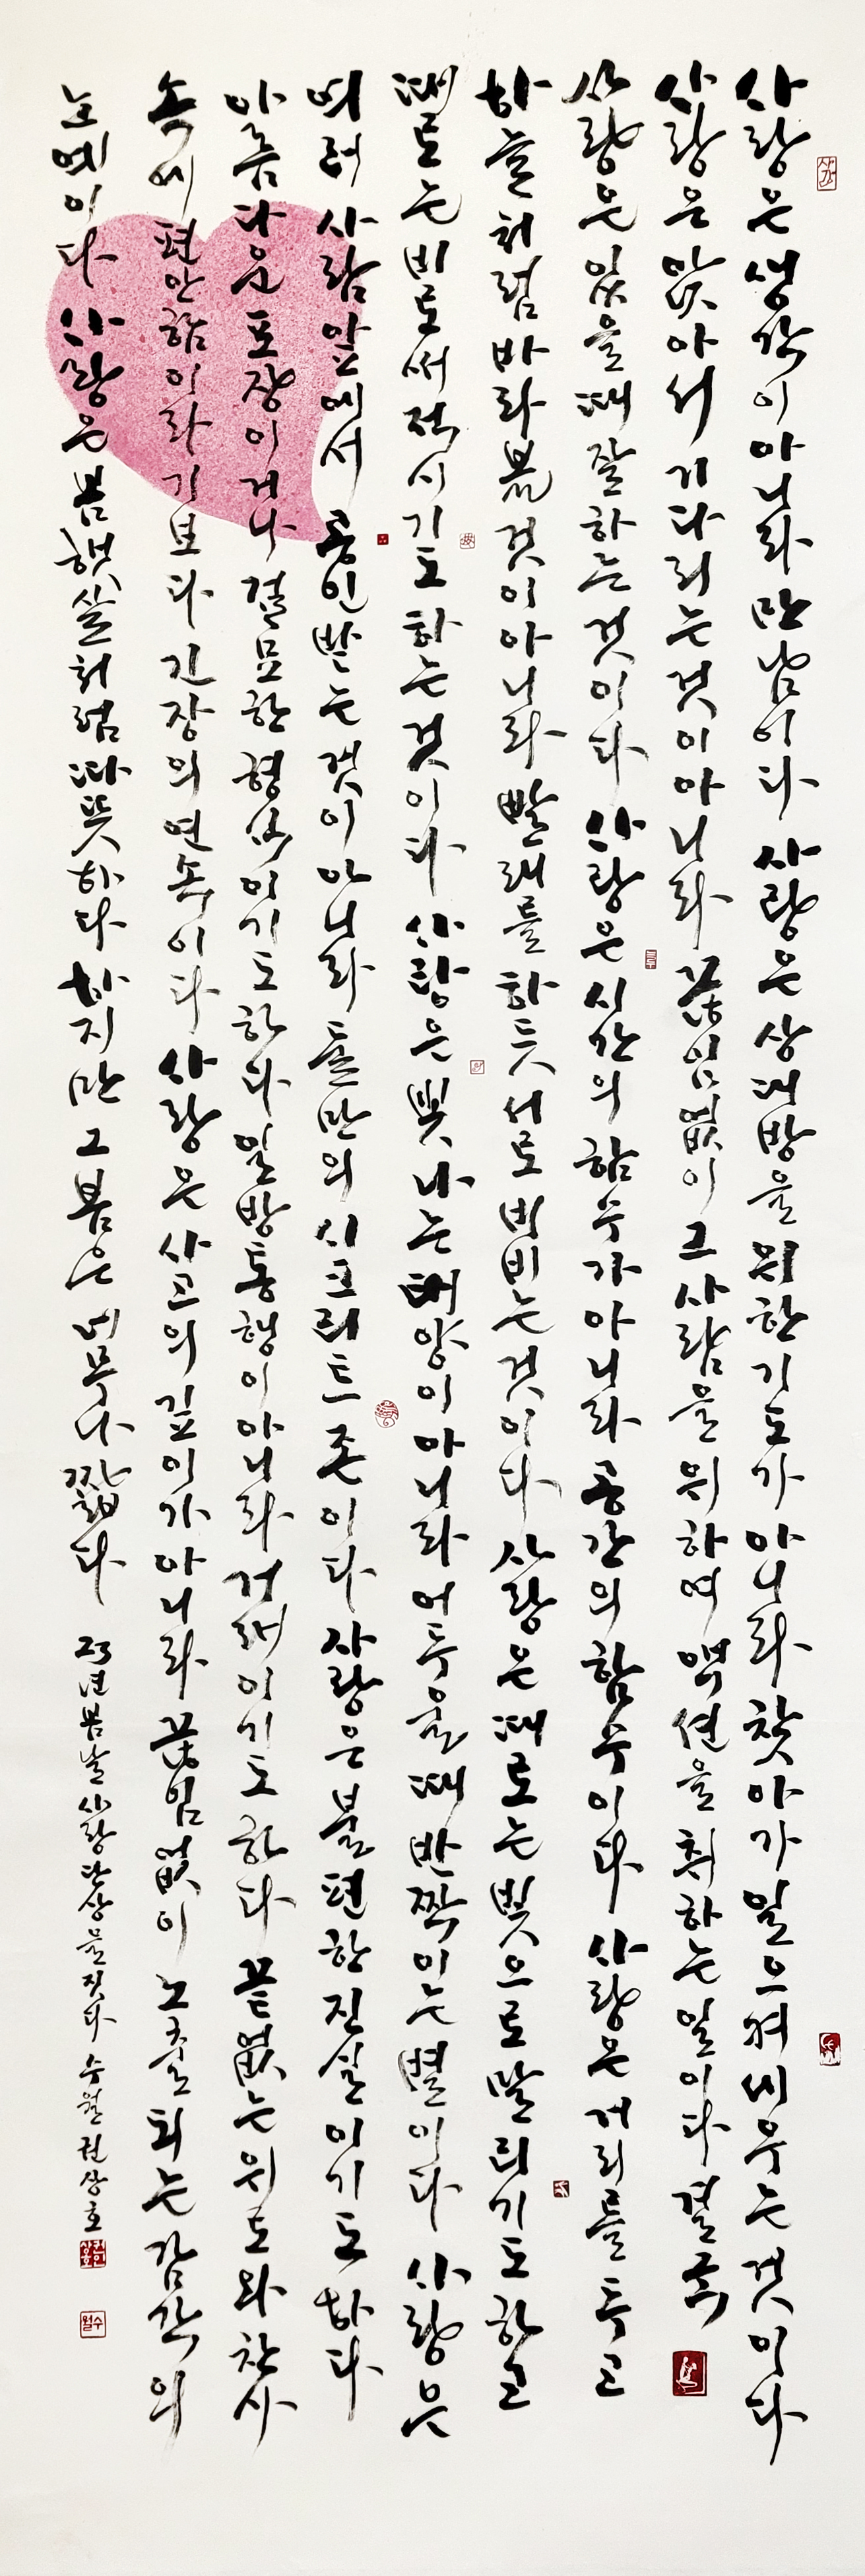 사랑은 생각이 아니라 만남이다 사랑은 상대방을 위한 기도가 아니라 찾아가 일으켜 세우는 것이다
사랑은 앉아서 기다리는 것이 아니라 끊임없이 그 사람을 위하여 액션을 취하는 일이다 결국
사랑은 있을 때 잘하는 것이다 사랑은 시간의 함수가 아니라 공간의 함수이다 사랑은 거리를 두고
하늘처럼 바라볼 것이 아니라 빨래를 하듯 서로 비비는 것이다 사랑은 때로는 빛으로 말리기도 하고
때로는 비로써 적시기도 하는 것이다 사랑은 빛나는 태양이 아니라 어두울 때 반짝이는 별이다 사랑은
여러 사람 앞에서 공인 받는 것이 아니라 둘만의 시크리트 존이다 사랑은 불편한 진실이기도 하다
아름다운 포장이거나 절묘한 형식이기도 하다 일방통행이 아니라 거래이기도 하다 끝없는 위로와 찬사
속에 편안함이라기보다 긴장의 연속이다 사랑은 사고의 깊이가 아니라 끊임없이 노출되는 감각의
노예이다 사랑은 봄 햇살처럼 따뜻하다 하지만 그 봄은 너무나 짧다
23년 봄날 사랑 단상을 짓다 수월 권상호
권상호인
수월